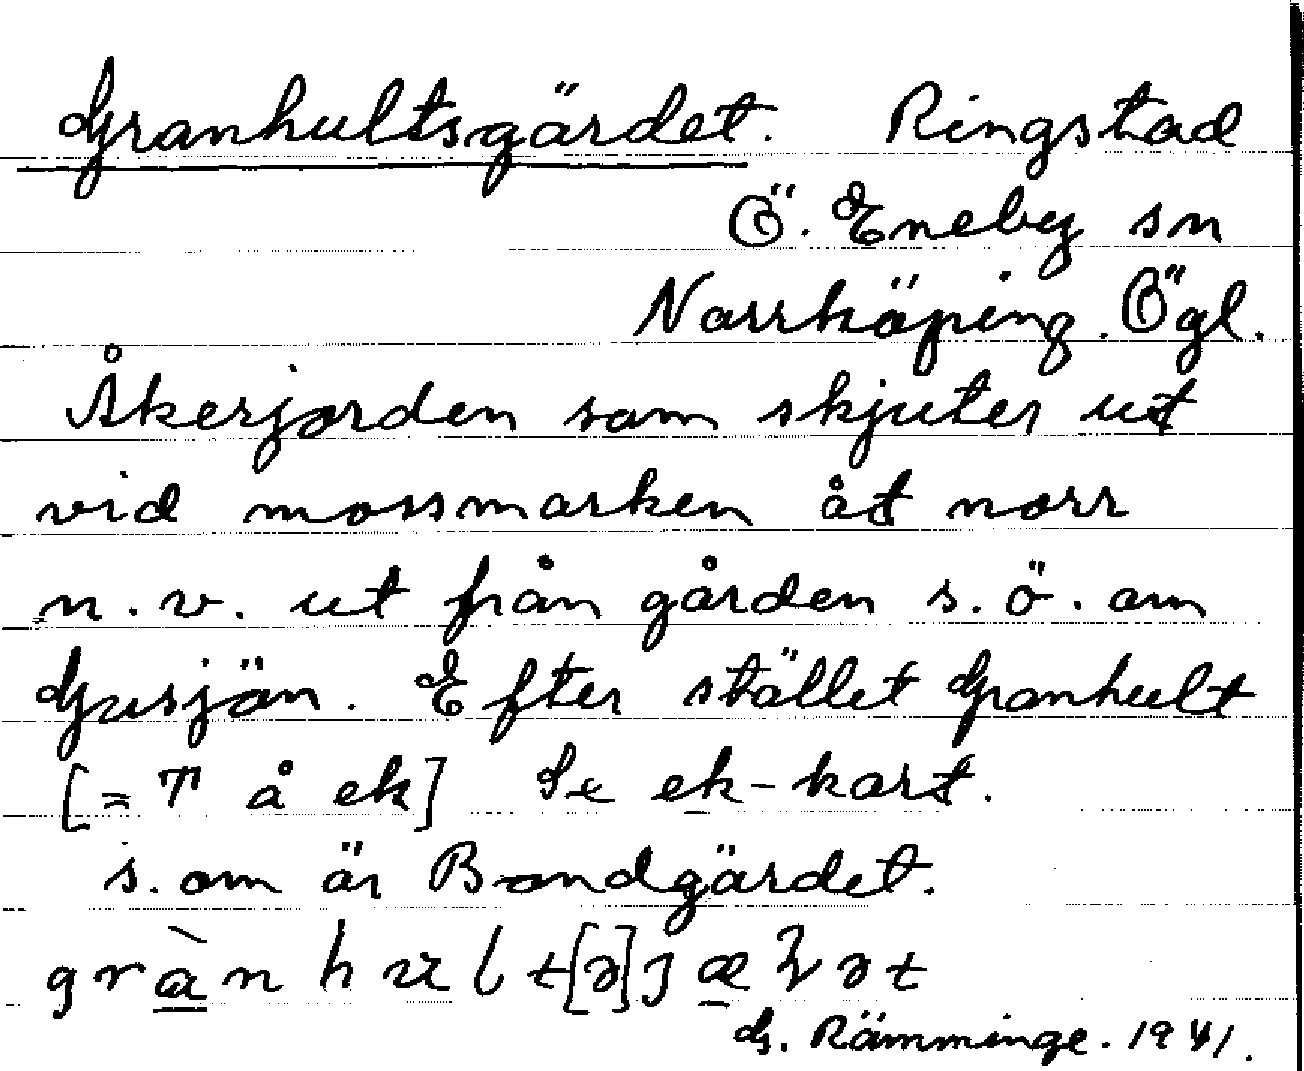 Granhultsgärdet. Ringstad
Ö. Eneby sn
Norrköping. Ögl.
Åkerjorden som skjuter ut
vid mossmarken åt norr
n.v. ut från gården s.ö. om
Gusjön. Efter stället Granhult
[= T å ek] Se ek-kart.
s. om är Bondgärdet.
G. Rämminge. 1941.